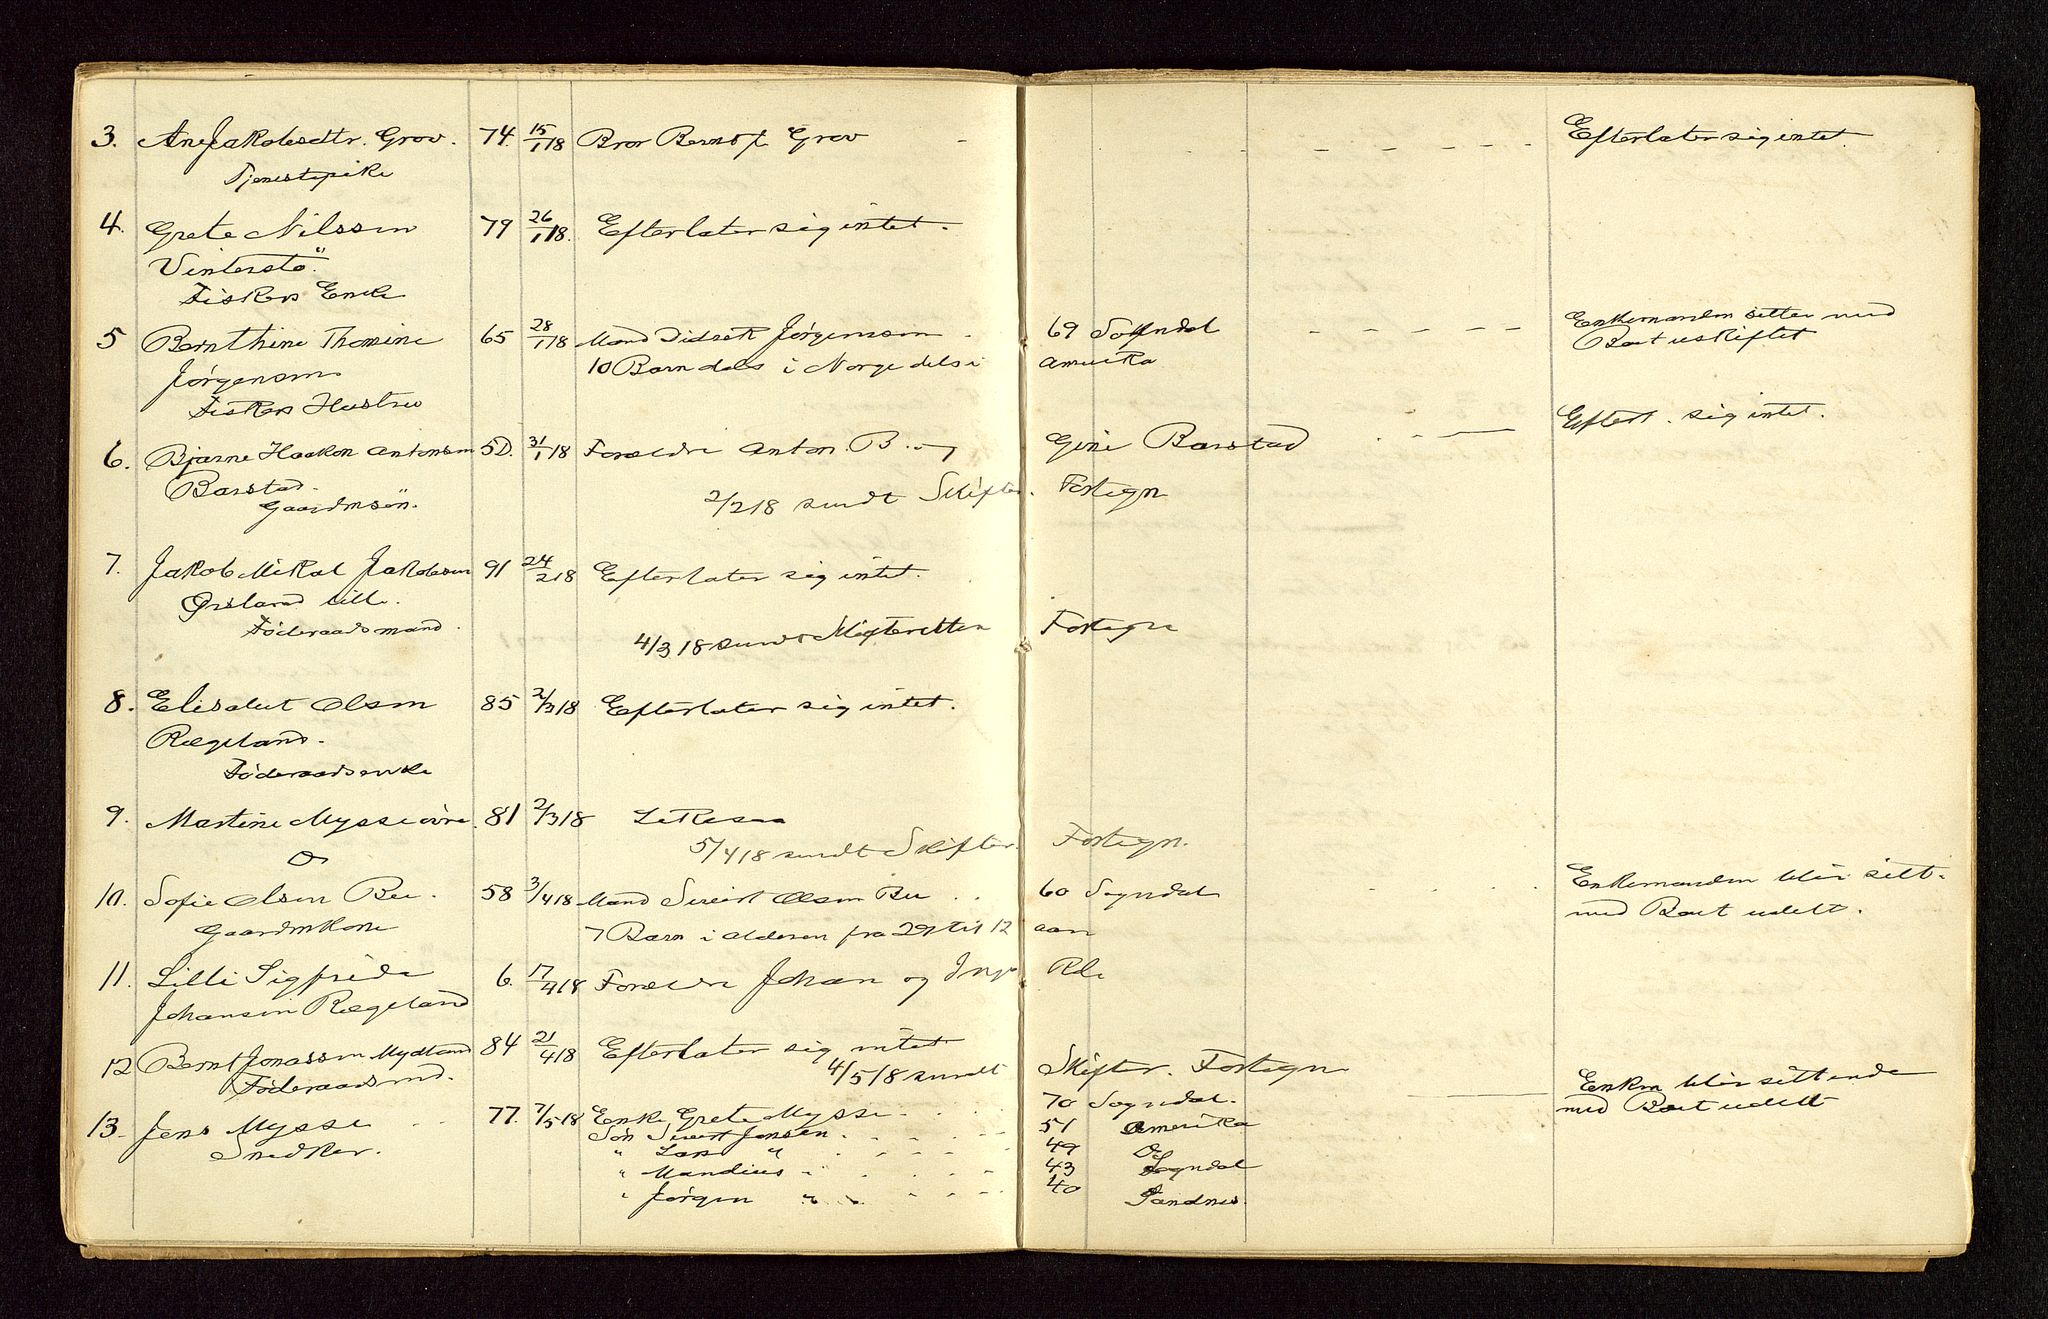 3. Ane Jakobsdtr. Grov. 74. 15/1 18 Bror Bernt J. Grov - - - - - - - Efterlater sig intet.
Tjenestepike
4. Grete Nilssen 79 26/1 18. Efterlater sig intet.
Vinterstø.
Fiskers Enke
5 Bernthine Thomine 65 28/1 18 Mand Didrek Jørgensen 69 Sokndal - - - - - Enkemanden sitter med
Jørgensen 10 Barn dels i Norge dels i Amerika Boet uskiftet
Fiskers Hustru
6. Bjarne Haakon Antonsen 5 D. 31/1 18 Forældre Anton B. og Gine Barstad - - - Efterl. sig intet.
Barstad.
Gaardmsøn. 2/2 18 sendt Skifter. Fortegn
7. Jakob Mikal Jakobsen 91 24/2 18 Efterlater sig intet.
Ørsland lille.
Føderaadsmand. 4/3 18 sendt Skifteretten Fortegn
8. Elisabet Olsen 85 2/3 18 Efterlater sig intet.
Rægeland.
Føderaadsenke
9. Martine Mysse øvre. 81 2/3 18
5/4 18 sendt Skifter. Fortegn.
10. Sofie Olsen Bu. 58 3/4 18 Mand Sivert Olsen Bu . . 60 Sogndal - - - Enkemanden blir sitt.
Gaardmkone 7 Barn i alderen fra 29 til 12 aar med Boet udelt.
11. Lilli Sigfrida 6. 17/4 18 Forældre Johan og
Johansen Rægeland
12 Bernt Jonassen Mydland 84 21/4 18 Efterlater sig intet
Føderaadsmd. 4/5 18 sendt Skifter. Fortegn
13. Jens Mysse . . 77. 7/5 18 Enke Grete Mysse . . . 70 Sogndal. - - - Enken blir sittende
Snedker. Søn Sivert Jensen . - - - 51 Amerika med Boet udelt
" Lars " . - - - 49 Do
" Mandius " . - - - 43 Sogndal
" Jørgen " . . - - - 40 Sandnes.